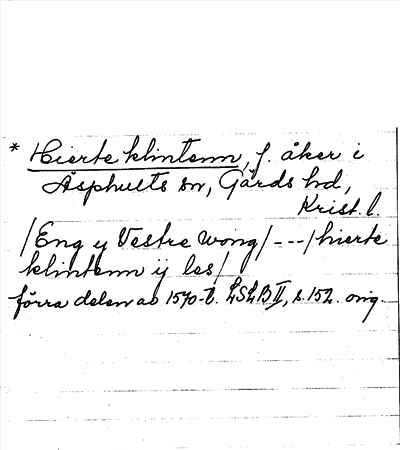 * Hierte klintenn, f. åker i
Äsphults sn, Gärds hd,
Krist. l.
/Eng y Vestre Wong/---/hierte
klintenn ij les/
förra delen av 1570-t. LSLB II, s. 152. orig.